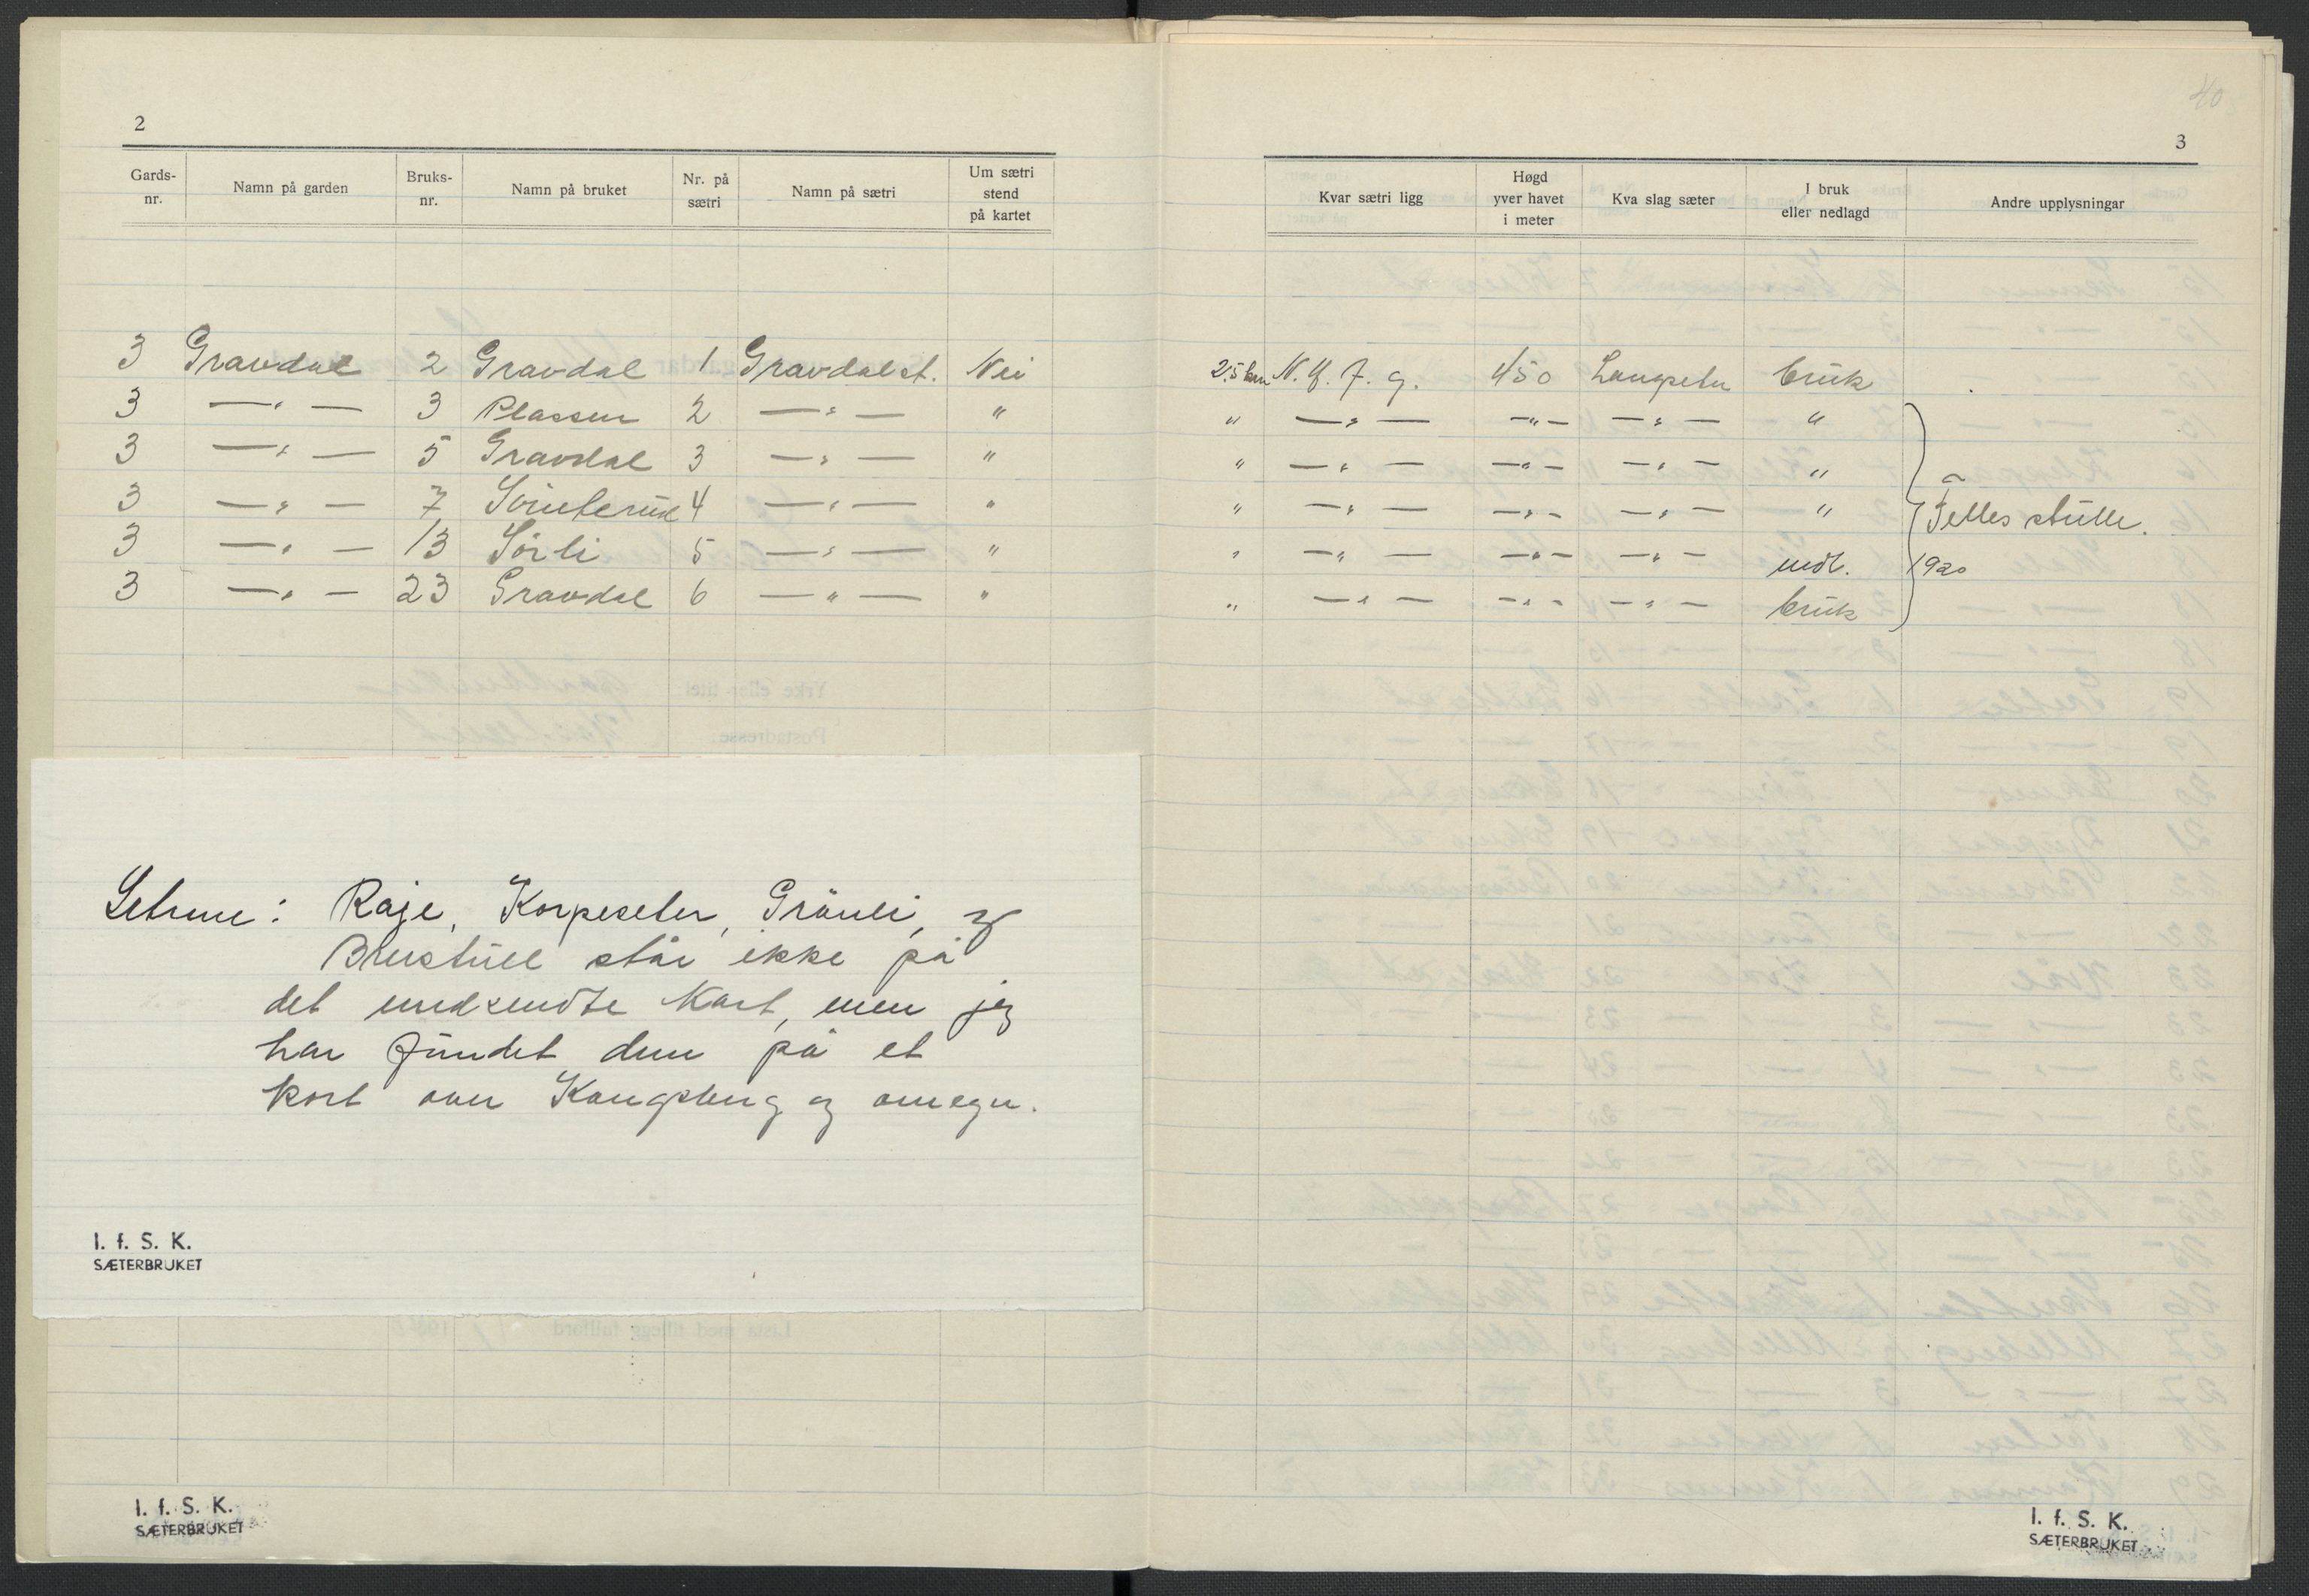 2
Gards-nr. Namn på garden Bruks-nr. Namn på bruket Nr. på sætri Namn på sætri Um sætri stend på kartet
3 Gravdal 2 Gravdal 1 Gravdalst. Nei
3 —"— 3 Plassen 2 —"— "
3 —"— 5 Gravdal 3 —"— "
3 —"— 7 4 —"— "
3 —"— 13 Sörli 5 —"— "
3 —"— 23 Gravdal 6 —"— "
Setrene: Raje, Korpeseter, Gränli, og
står ikke på
det medsendte Kart, men jeg
har fundet dem på et
kort over Kongsberg og omegn.
I. f. S. K.
SÆTERBRUKET
I. f. S. K.
SÆTERBRUKET
40
3
Kvar sætri ligg Høgd yver havet i meter Kva slag sæter I bruk eller nedlagd Andre upplysningar
2.5 km N. f. g. 450 Langseter bruk
" —"— —"— —"— "
" —"— —"— —"— "
" —"— —"— —"— " Felles stulle.
" —"— —"— —"— nedl. 1920
" —"— —"— —"— bruk
I. f. S. K.
SÆTERBRUKET